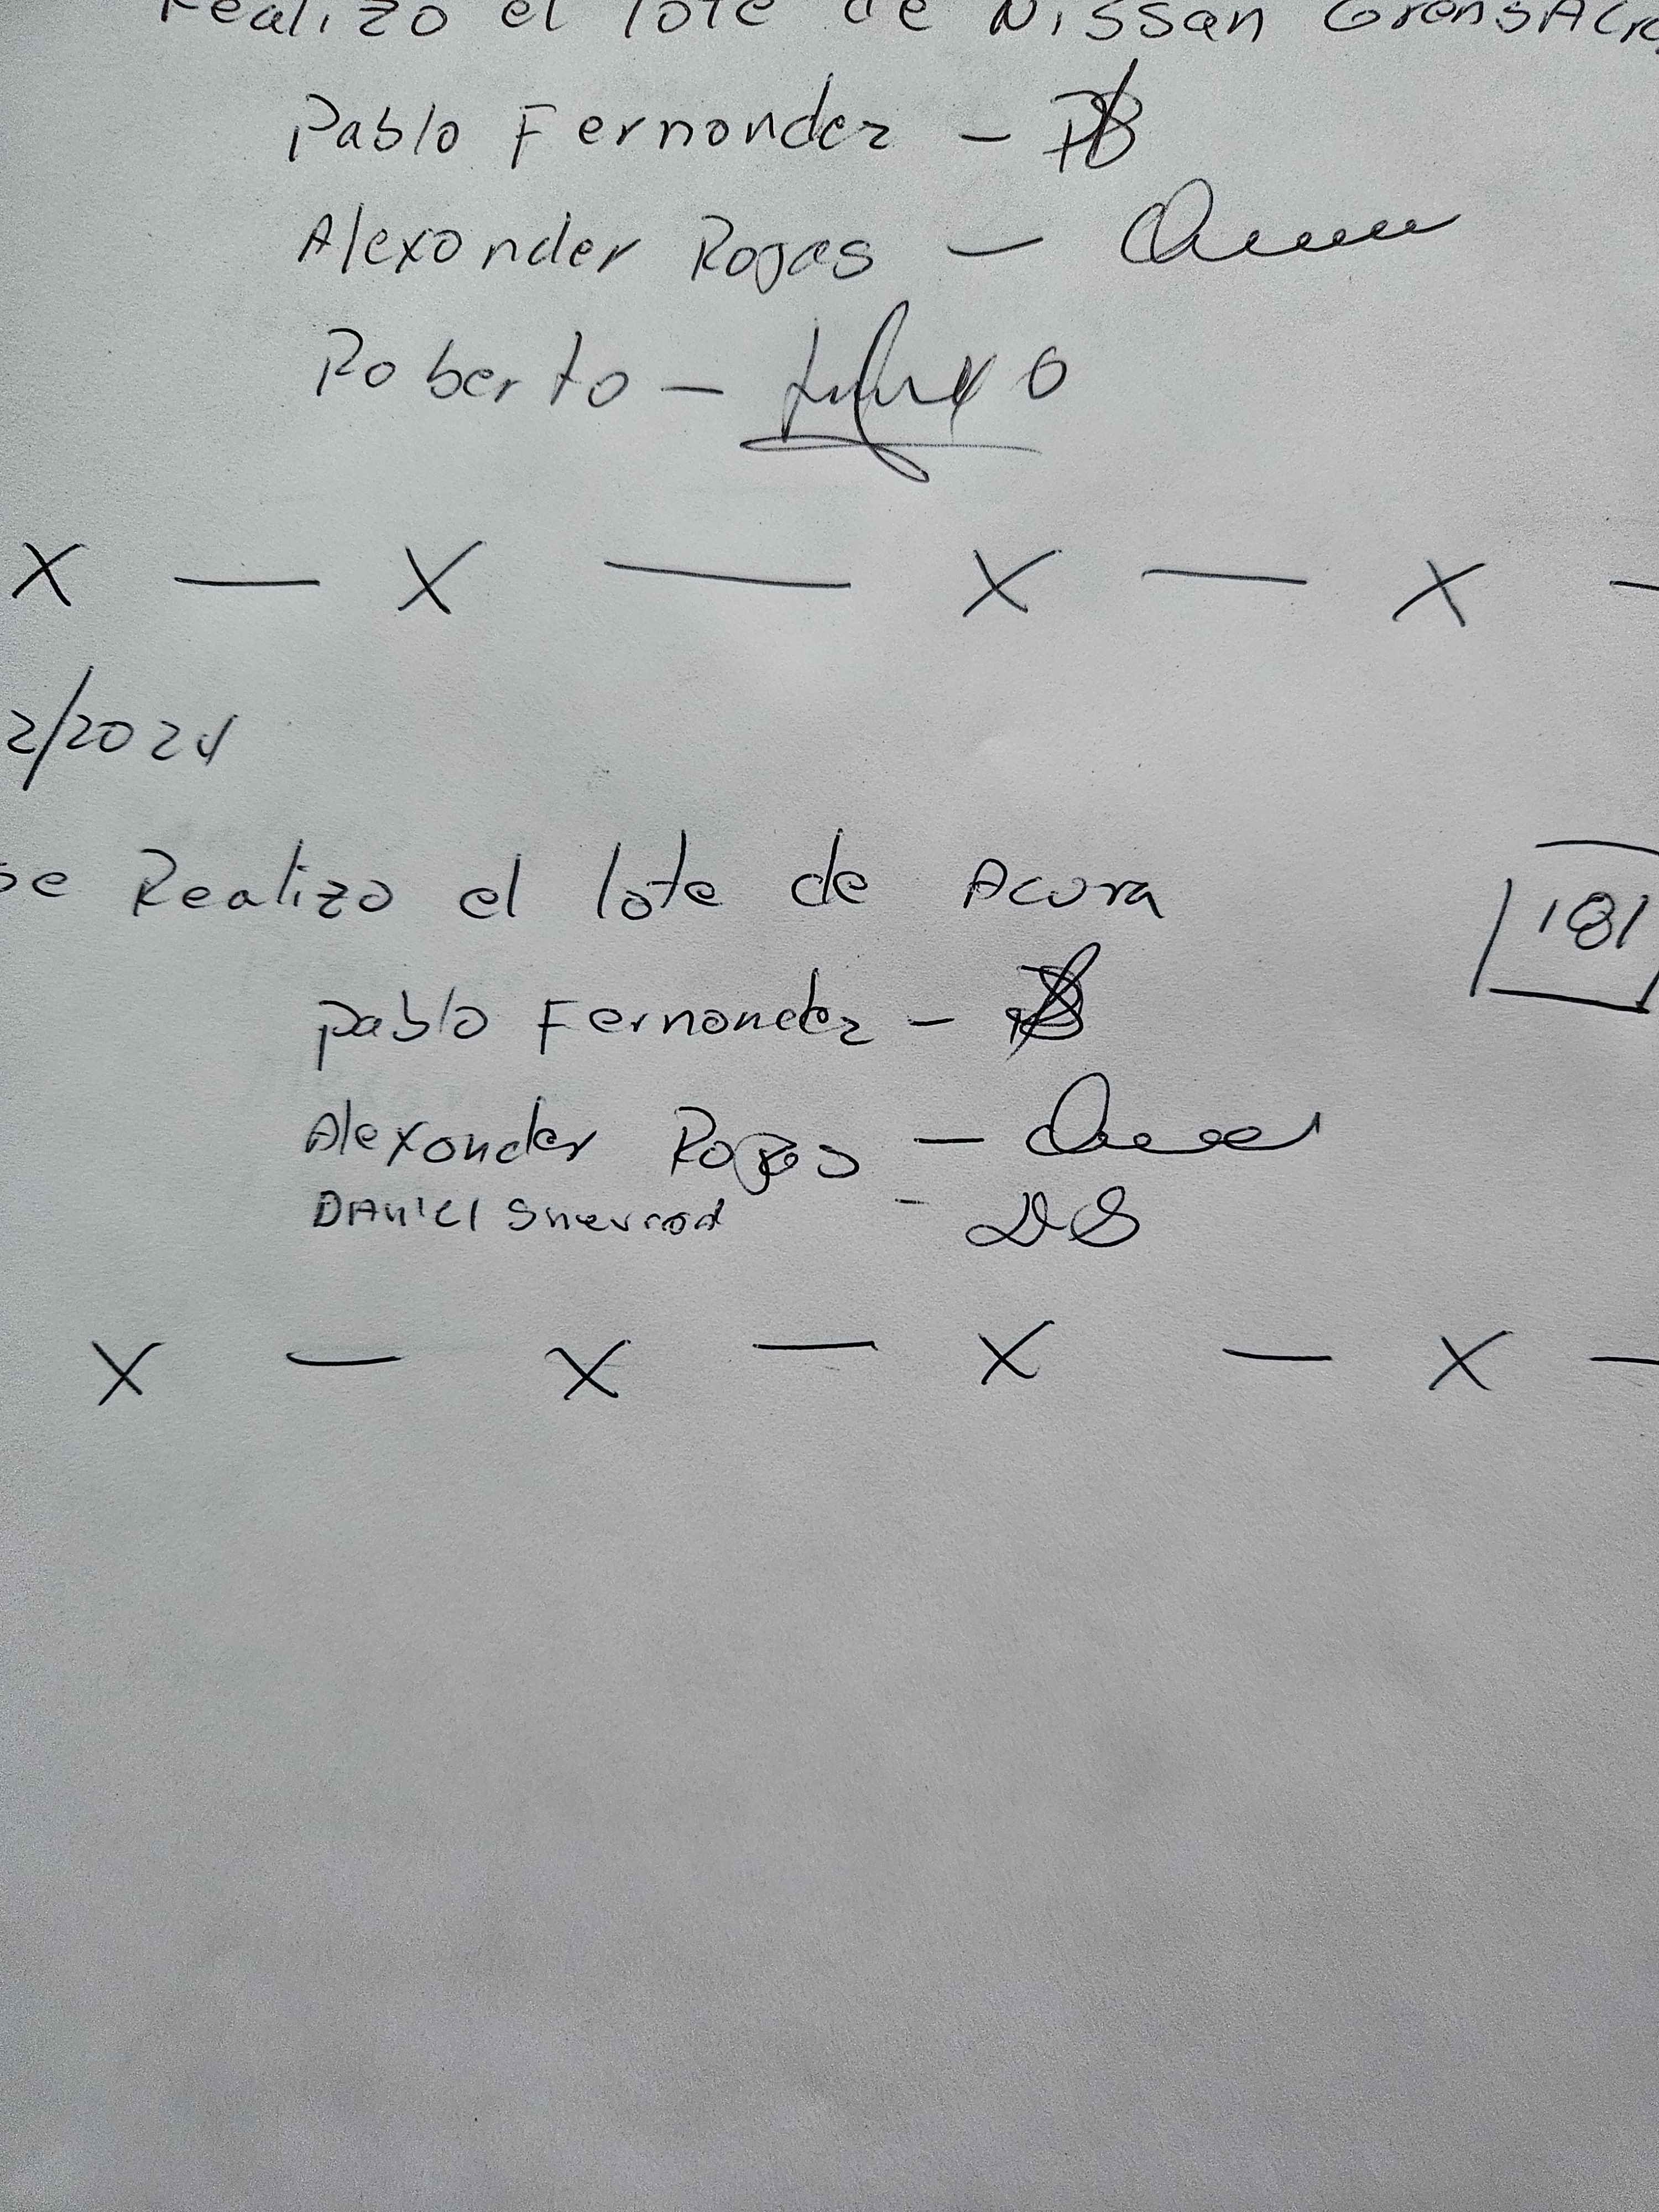 Realizo el lote de Nissan
Pablo Fernondez -
Alexonder Rojas -
Roberto -
X — X — X — X —
2/2024
se Realizo el lote de Acura
181
pablo Fernondez -
Alexonder Rojas -
DANiel - DS
X — X — X — X —